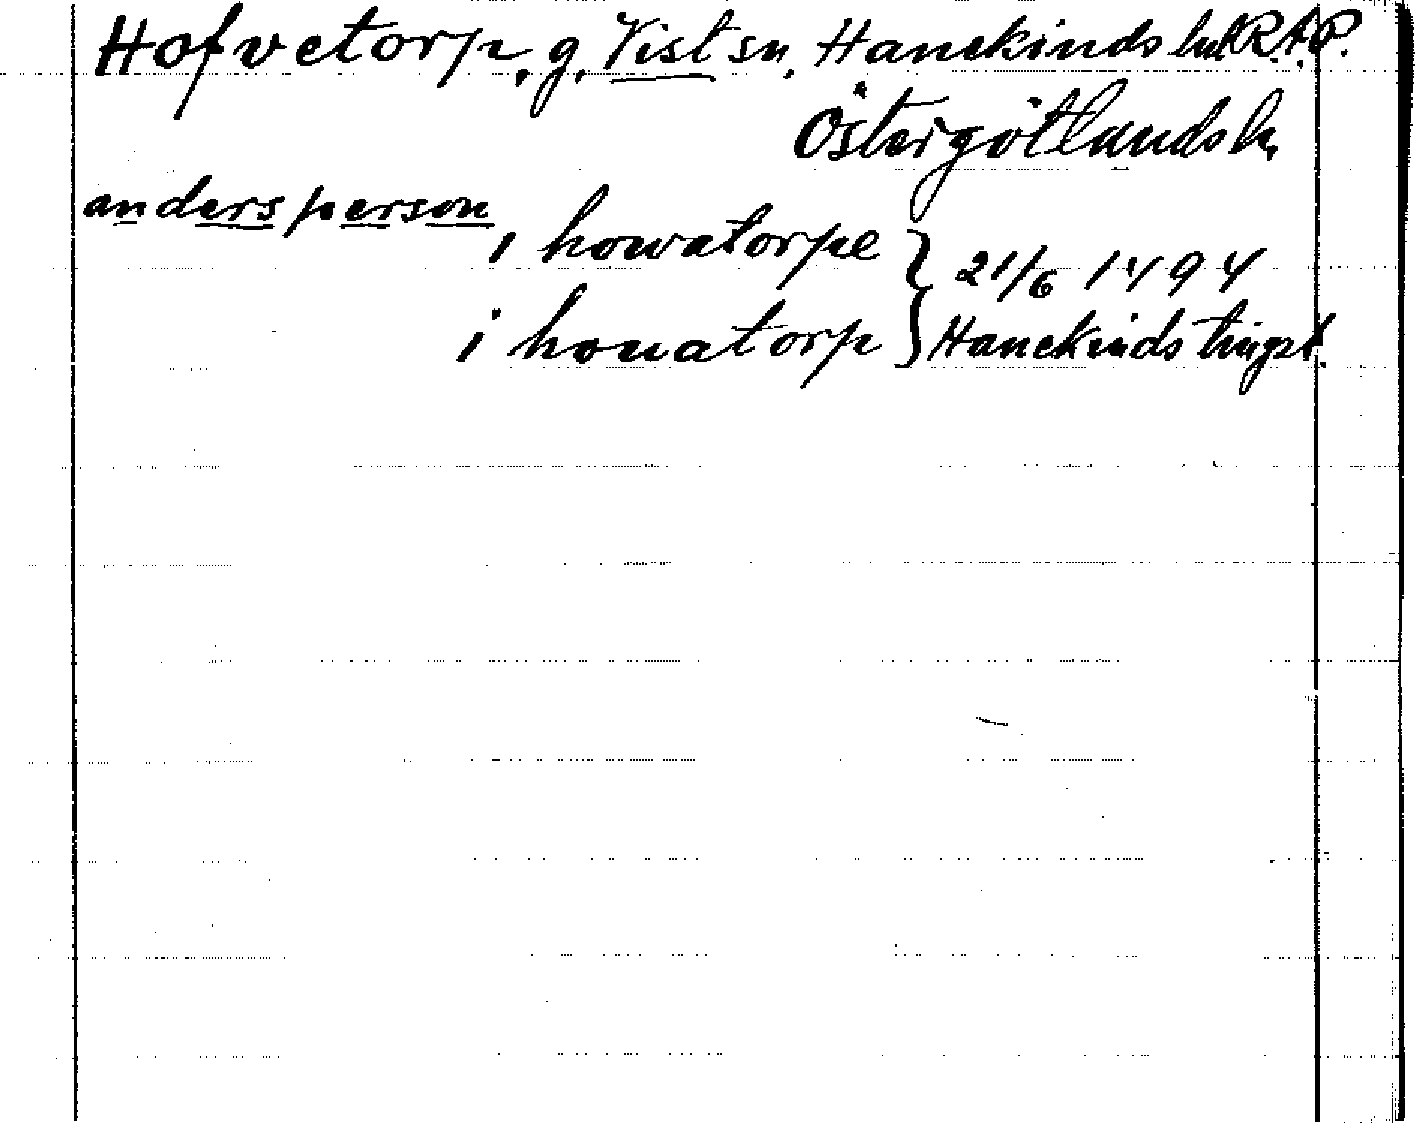 Hofvetorp, g. Vist sn, Hanekinds hd R.A.P.
Östergötlands l.
anders person, i howatorpe } 21/6 1494
i houatorp } Hanekinds tingst.